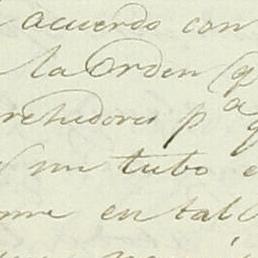 acuerdo con
la Orden (q
rehedores pª q
mi tubo e
me en tal